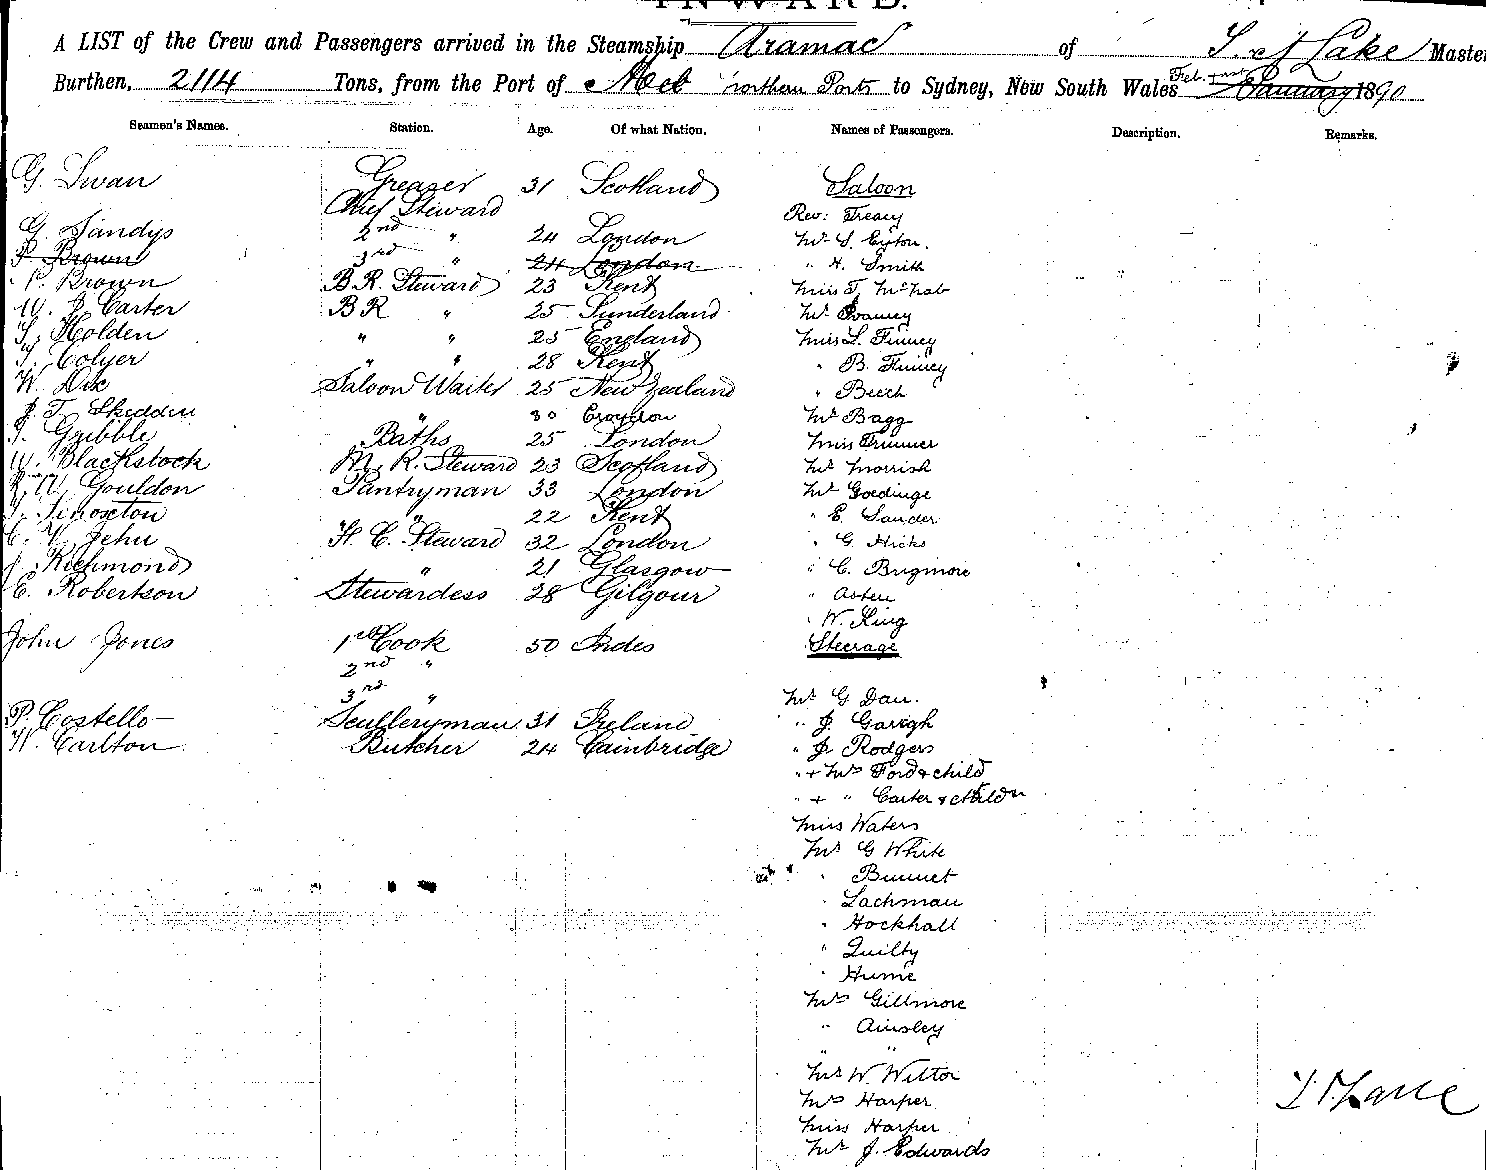 INWARD.
A LIST of the Crew and Passengers arrived in the Steamship Aramac of Lake Master
Burthen, 2114 Tons, from the Port of Northern Ports to Sydney, New South Wales Feb. January 1890
Seamen's Names. Station. Age. Of what Nation. Names of Passengers. Description. Remarks.
G. Swan Greaser 31 Scotland Saloon
Chief Steward Rev: Treacy
G. Sandys 2nd " 24 London Mr S. Eyton.
P. Brown 3rd " 24 London " H. Smith
P. Brown B.R. Steward 23 Kent Miss T. McNab
W. J. Carter B R " 25 Sunderland Mr
Holden " " 25 England Miss L. Finney
T. Colyer " " 28 Kent " B. Finney
W. Dix Saloon Waiter 25 New Zealand " Beech
J. T. Skedden " 30 Croydon Mr Bagg
Gribble Baths 25 London Miss Trimmer
W. Blackstock M. R. Steward 23 Scotland Mr Morrish
W. Gouldon Pantryman 33 London Mr Goedinge
" 22 Kent " E. Sander
C. V. Jehu H. C. Steward 32 London " G. Hicks
J. Richmond " 21 Glasgow " C. Brigmore
E. Robertson Stewardess 28 Gilgour " Asten
" W. King
John Jones 1st Cook 50 Indes Steerage
2nd "
3rd " Mr G Dau.
P. Costello Sculleryman 31 Ireland " J. Garrigh
W. Carlton Butcher 24 Cainbridge " J. Rodgers
" + Mrs Ford & child
" + " Carter & childn
Miss Waters
Mr G White
" Bunnet
" Lachman
" Hockhall
" Quilty
" Hume
Mrs Gillmore
" Ainsley
" "
Mr W. Witton
Mrs Harper
Miss Harper
Mr J. Edwards